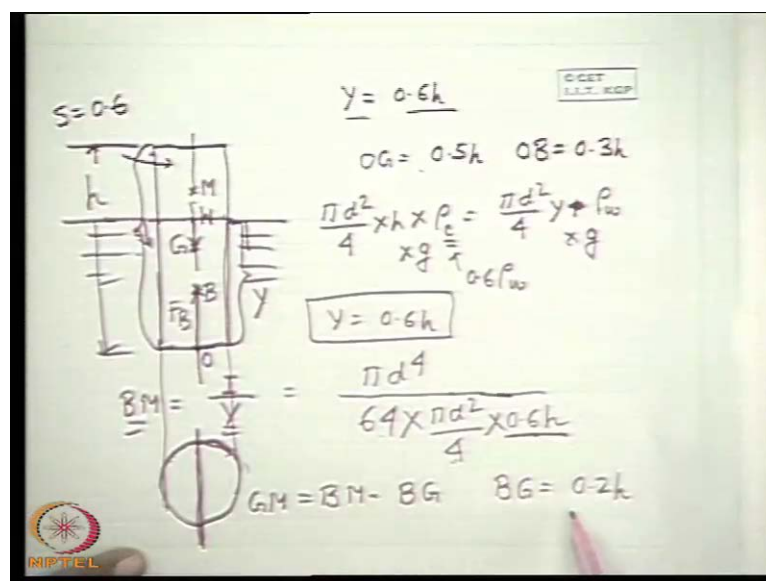 S=0.6
Y = 0.6h
C CET
I.I.T. KGP
OG = 0.5h OB = 0.3h
h
M
W
G
B
F_B
Y
O
πd²/4 × h × ρ_c × g = πd²/4 y ρ_w × g
0.6ρ_w
Y = 0.6h
BM = I/V = πd⁴ / (64 × πd²/4 × 0.6h)
GM = BM - BG BG = 0.2h
NPTEL